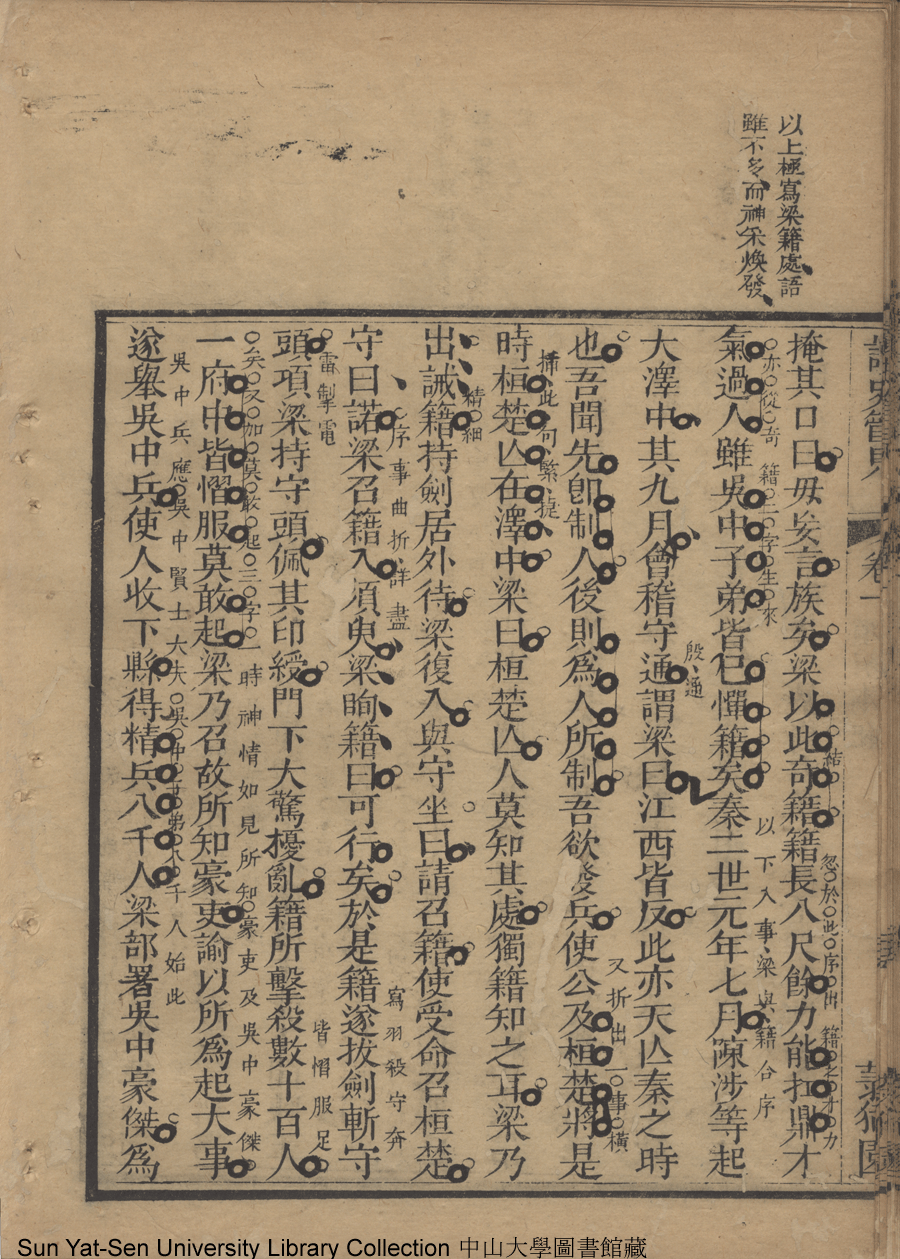 以上極寫梁籍處語
雖不多而神采煥發
掩其口曰毋妄言族矣梁以此奇籍籍長八尺餘力能扛鼎才
結
忽於此序出籍之才力
亦從奇籍二字生來
氣過人雖吳中子弟皆已憚籍矣秦二世元年七月陳涉等起
以下入事梁與籍合序
大澤中其九月會稽守通謂梁曰江西皆反此亦天亡秦之時
殷通
也吾聞先卽制人後則爲人所制吾欲發兵使公及桓楚將是
又折出一事橫
插此句緊捷
時桓楚亡在澤中梁曰桓楚亡人莫知其處獨籍知之耳梁乃
精細
出誡籍持劍居外待梁復入與守坐曰請召籍使受命召桓楚
序事曲折詳盡
守曰諾梁召籍入須臾梁眴籍曰可行矣於是籍遂拔劍斬守
寫羽殺守奔
雷掣電
頭項梁持守頭佩其印綬門下大驚擾亂籍所擊殺數十百人
皆慴服足
矣又加莫敢起三字一時神情如見所知豪吏及吳中豪傑
一府中皆慴服莫敢起梁乃召故所知豪吏諭以所爲起大事
吳中兵應吳中賢士大夫吳中子弟八千人始此
遂舉吳中兵使人收下縣得精兵八千人梁部署吳中豪傑爲
卷一
Sun Yat-Sen University Library Collection 中山大學圖書館藏